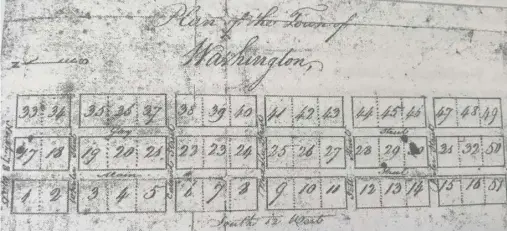 Plan of the Town of
Washington,
33 34 35 36 37 38 39 40 41 42 43 44 45 46 47 48 49
Gay Street
17 18 19 20 21 22 23 24 25 26 27 28 29 31 32 50
Main Street
1 2 3 4 5 6 7 8 9 10 11 12 13 14 15 16 51
Middle Street
South 12 West